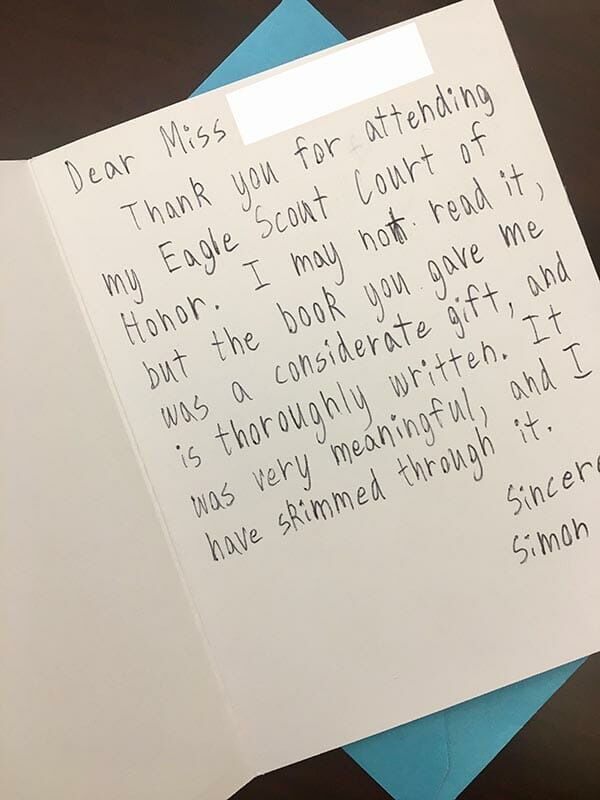 Dear Miss
Thank you for attending
my Eagle Scout Court of
Honor. I may not read it,
but the book you gave me
was a considerate gift, and
is thoroughly written. It
was very meaningful, and I
have skimmed through it.
Sincere
Simon